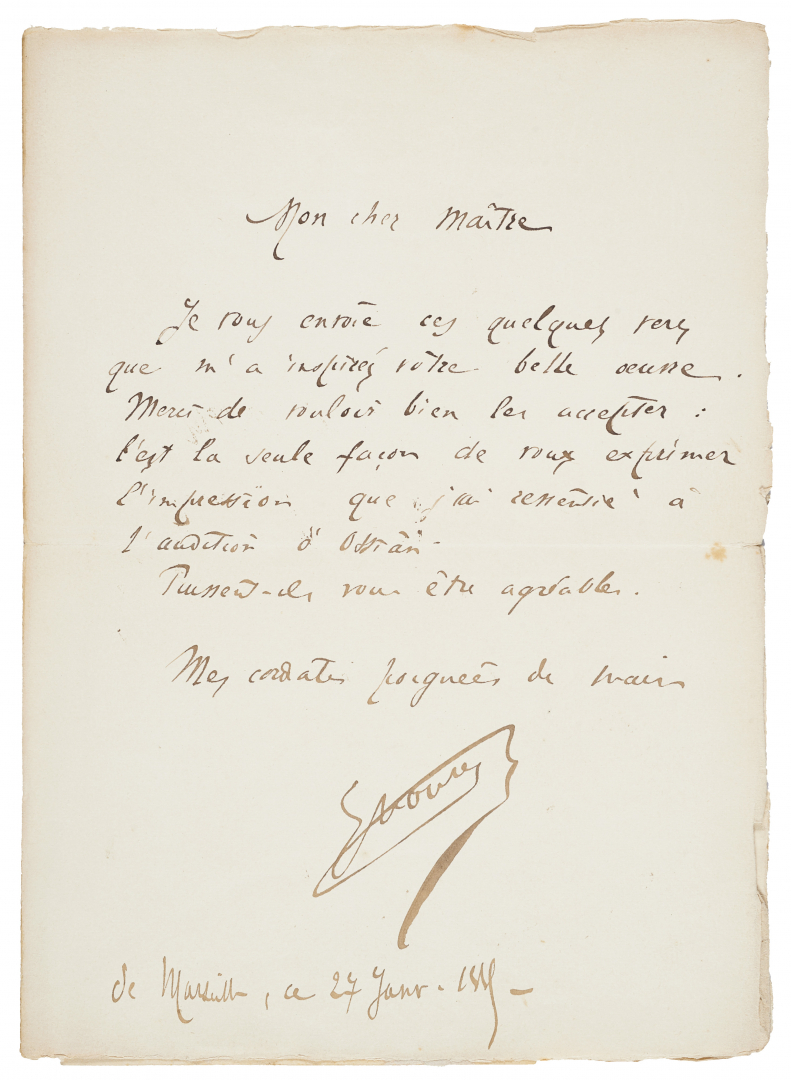 Mon cher Maître
Je vous envoie ces quelques vers
que m'a inspirés votre belle oeuvre.
Merci de vouloir bien les accepter :
c'est la seule façon de vous exprimer
l'impression que j'ai ressentie à
l'audition d'Ossian.
Puissent-ils vous être agréables.
Mes cordiales poignées de mains
de Marseille, ce 27 Janv.